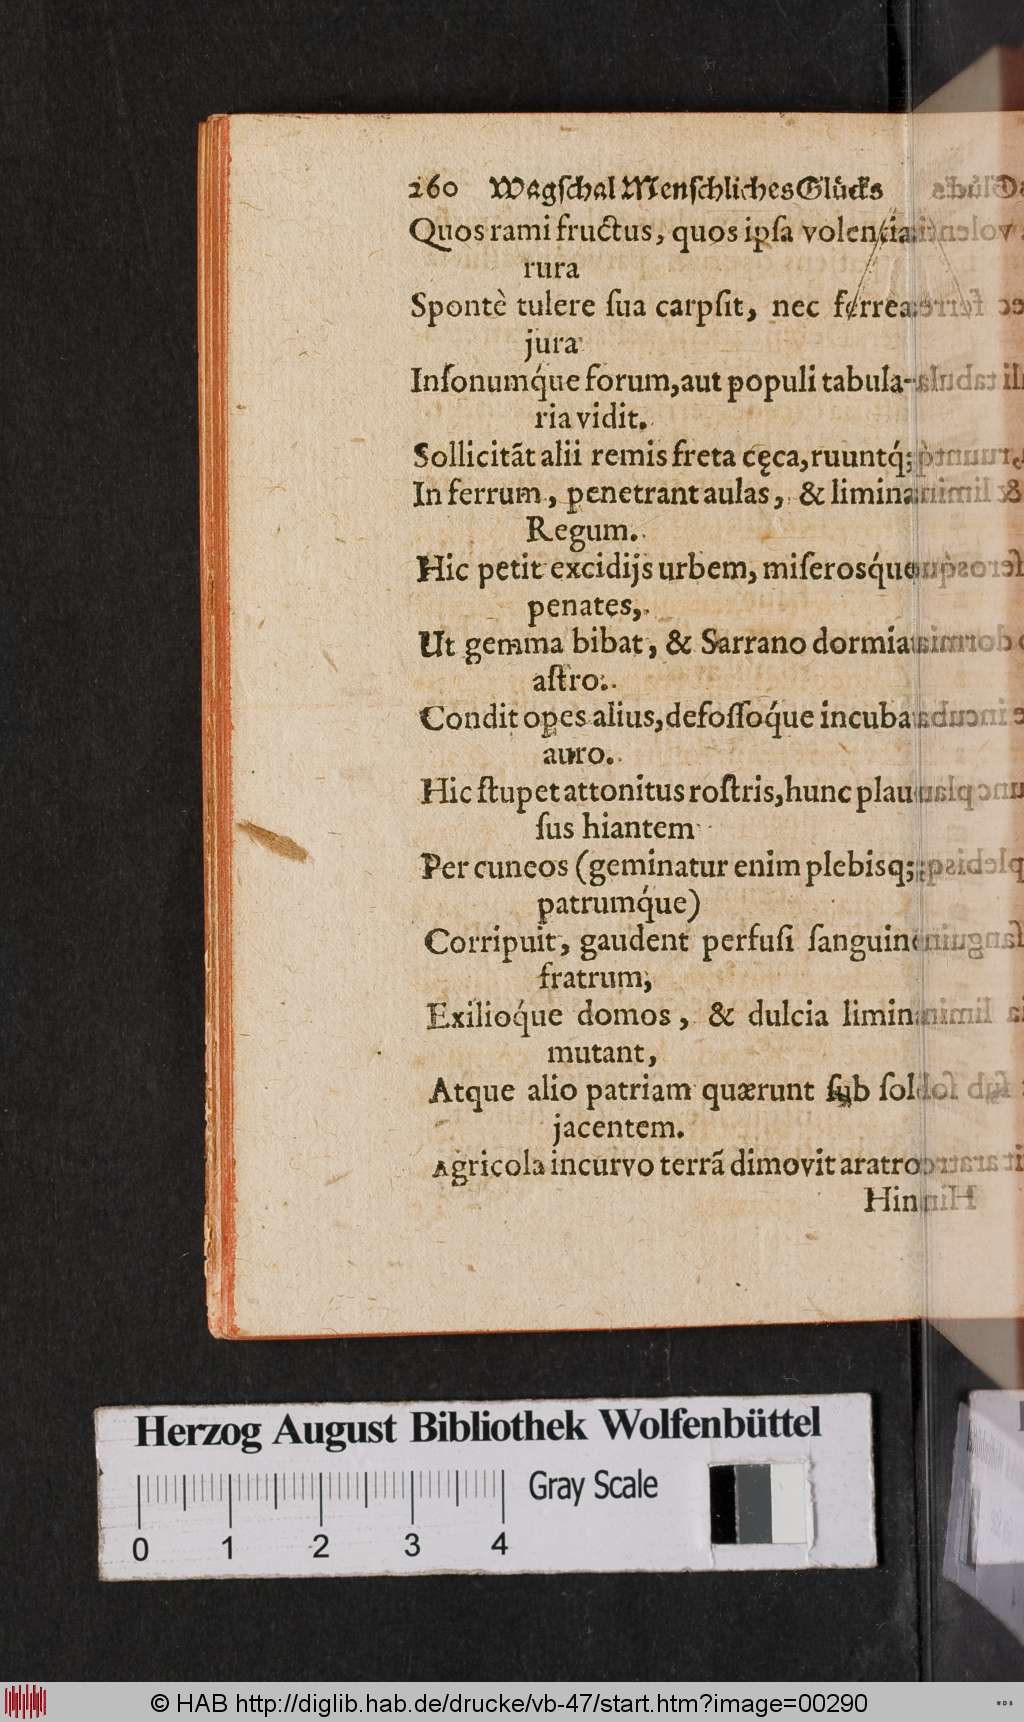 260 Wagſchal Menſchliches Glücks
Quos rami fructus, quos ipſa volentia
rura
Spontè tulere ſua carpſit, nec ferrea
jura
Inſonumq́ue forum, aut populi tabula-
ria vidit.
Sollicitãt alii remis freta cęca, ruuntq́;
In ferrum, penetrant aulas, & limina
Regum.
Hic petit excidijs urbem, miſerosq́ue
penates,
Ut gemma bibat, & Sarrano dormiat
aſtro.
Condit opes alius, defoſſoq́ue incubat
auro.
Hic ſtupet attonitus roſtris, hunc plau
ſus hiantem
Per cuneos (geminatur enim plebisq;
patrumq́ue)
Corripuit, gaudent perfuſi ſanguine
fratrum,
Exilioq́ue domos, & dulcia limin
mutant,
Atque alio patriam quærunt ſub ſol
jacentem.
Agricola incurvo terrã dimovit aratro
Hin
Herzog August Bibliothek Wolfenbüttel
Gray Scale
0 1 2 3 4
© HAB http://diglib.hab.de/drucke/vb-47/start.htm?image=00290